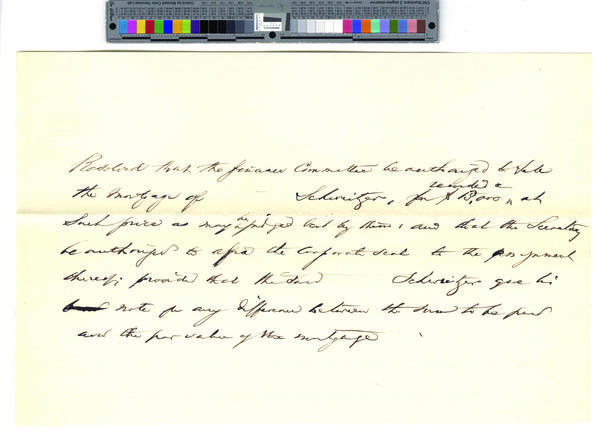 Resolved that the finance Committee be authorized to take
the mortgage of Schweitzer, for $ 8,000, at
such price as may be judged best by them; and that the Secretary
be authorized to affix the Corporate seal to the assignment
thereof; provided that the said Schweitzer give his
note for any difference between the sum to be paid
and the par value of the mortgage